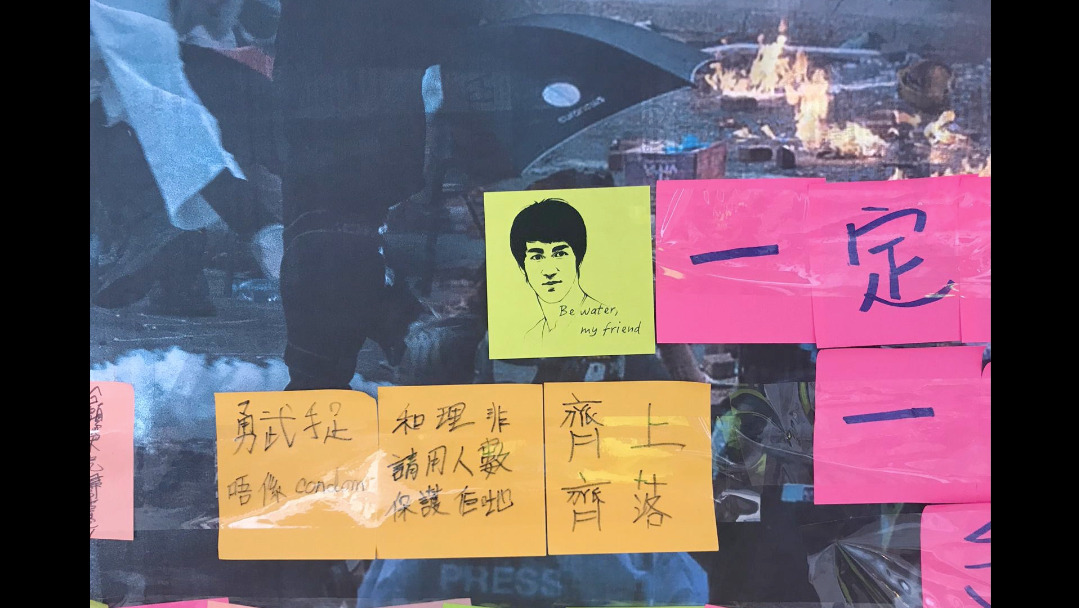 Be water,
my friend
一定
一
勇武手足
唔係 condom
和理非
請用人數
保護佢哋
齊上
齊落
PRESS